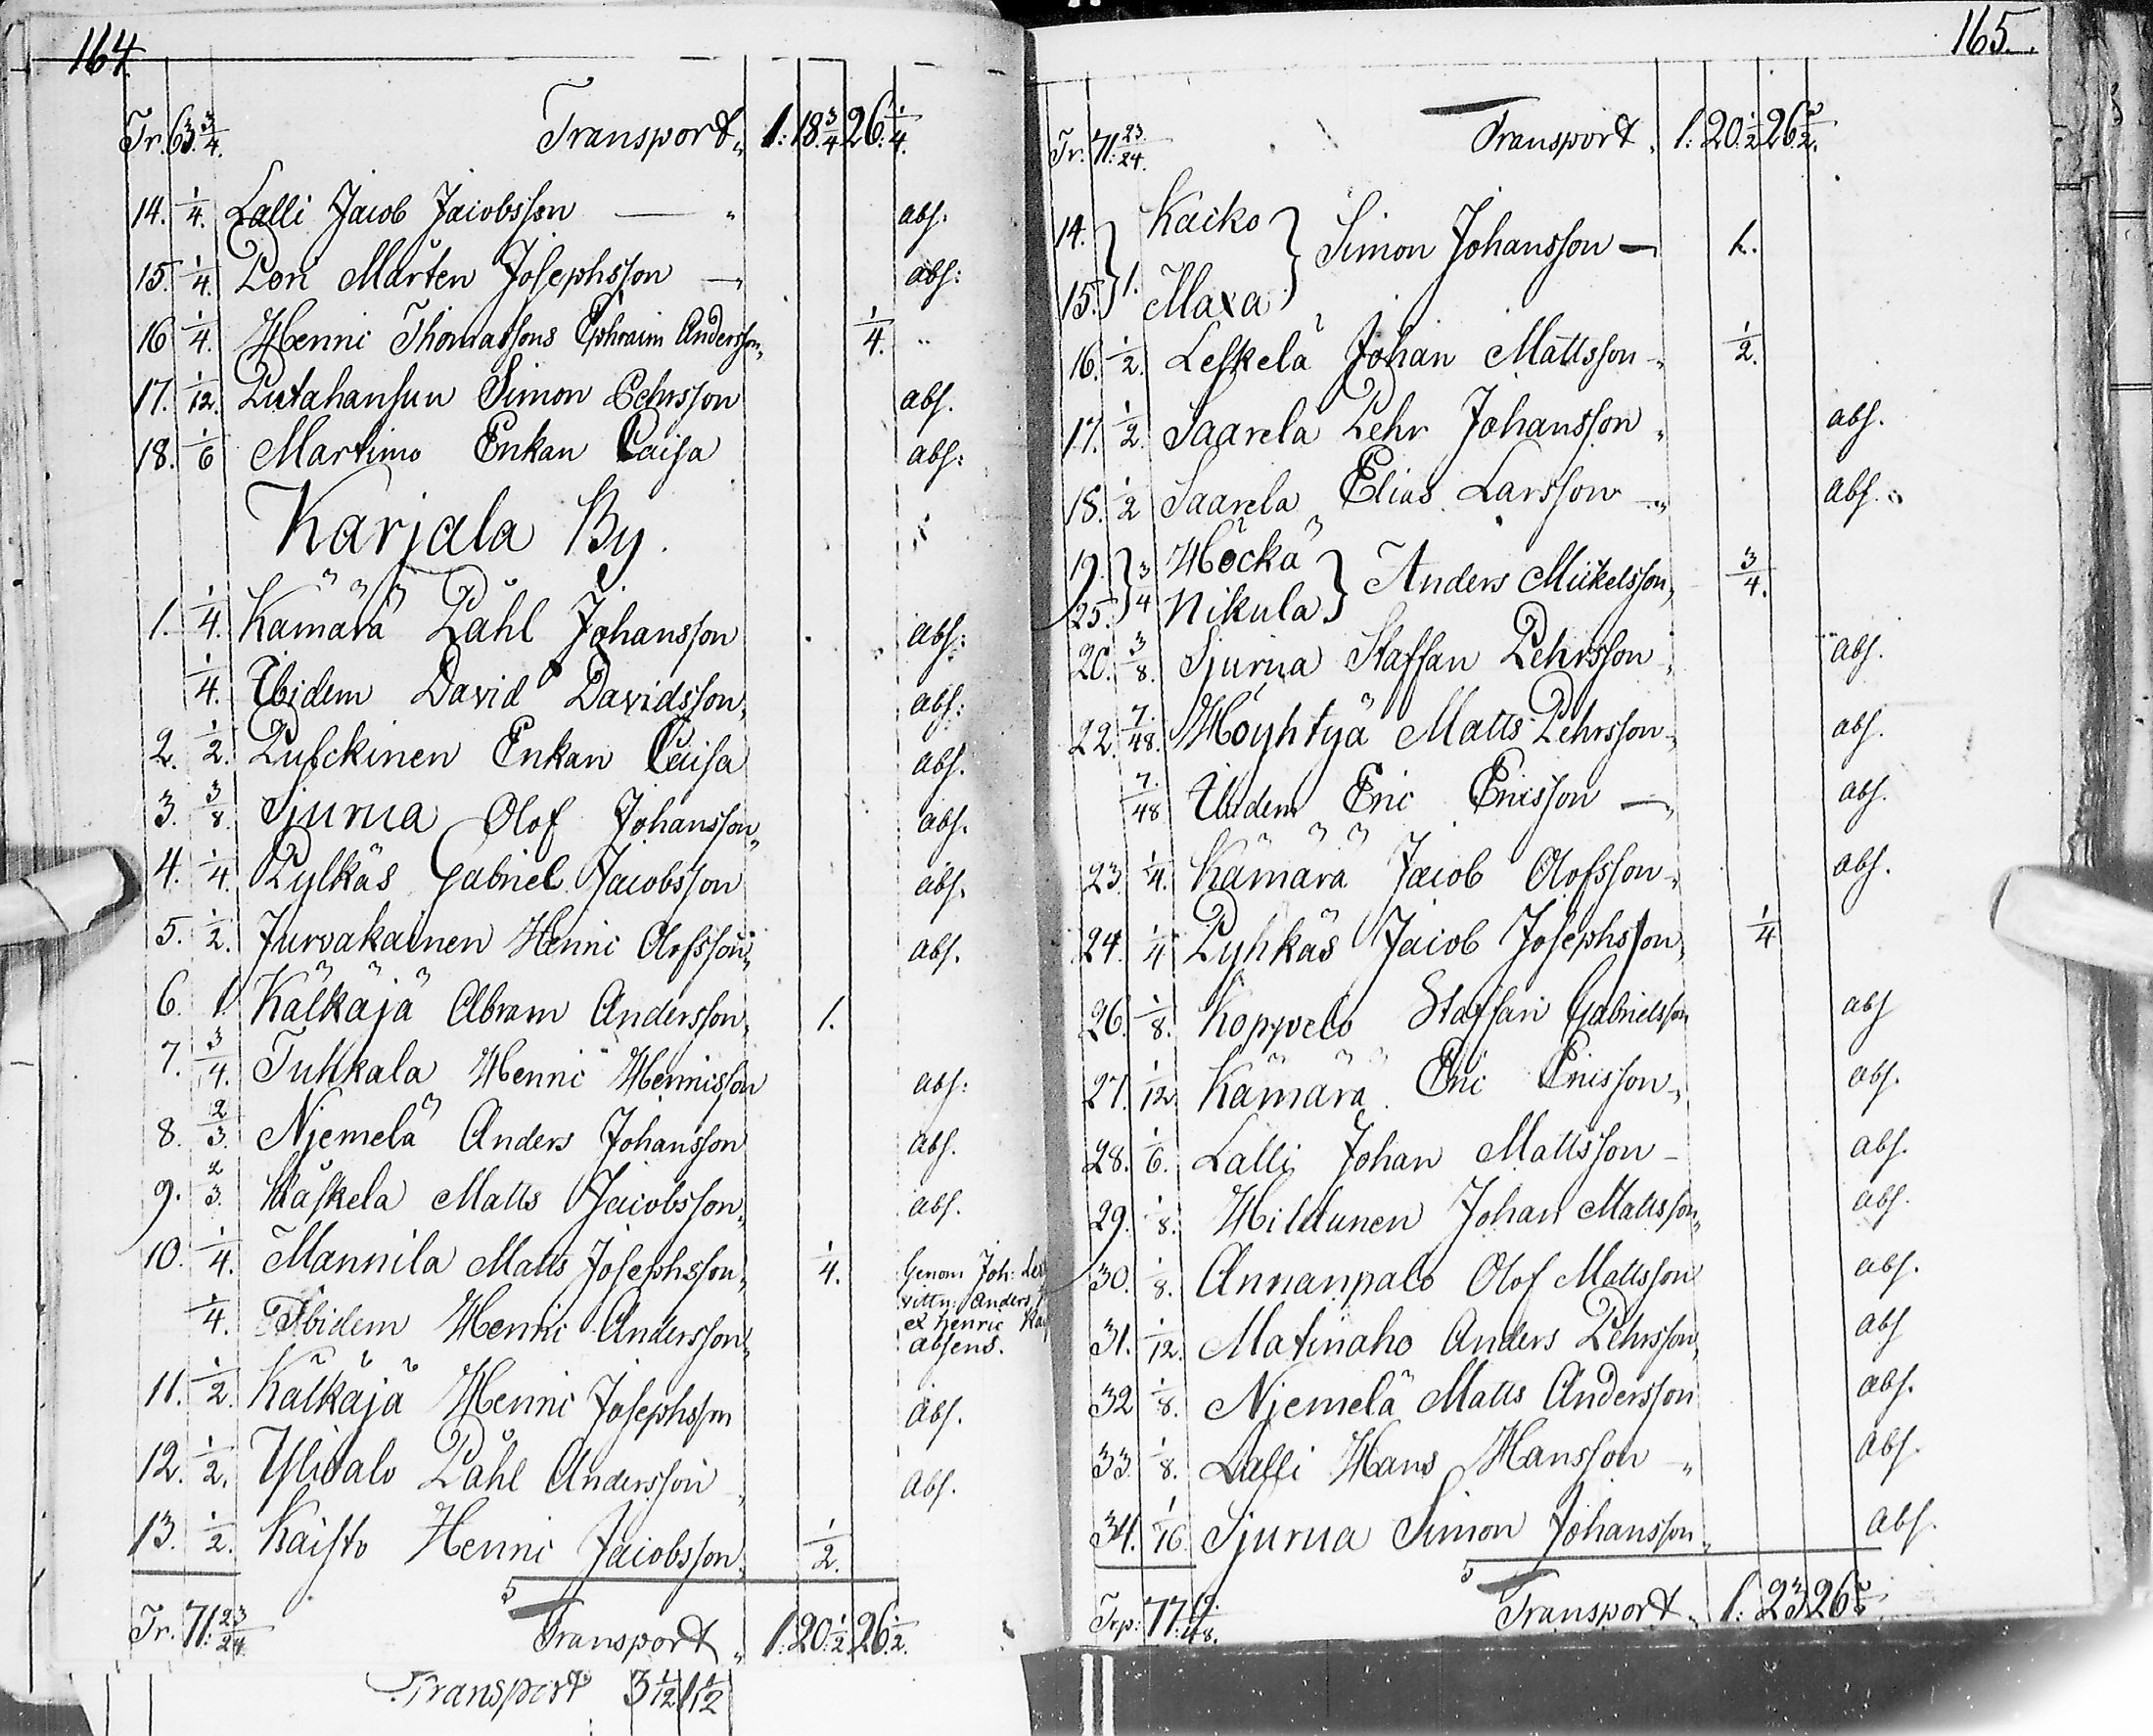 164.
Tr. 63. 3/4. Transport „ 1: 18. 3/4 26: 1/4.
14. 1/4. Lalli Jacob Jacobsson — „ abs.
15. 1/4. Lori Mårten Josephsson — „ abs:
16 1/4. Henric Thomassons Ephraim Andersson „ 1/4. „
17. 1/12. Putahansun Simon Pehrsson abs.
18. 1/6 Martimo Enkan Caisa abs:
Karjala By.
1. 1/4. Kämärä Påhl Johansson abs:
1/4. Ibidem David Davidsson „ abs:
2. 1/2. Pusckinen Enkan Caisa abs.
3. 3/8. Sjurua Olof Johansson „ abs.
4. 1/4. Pylkäs Gabriel Jacobsson abs.
5. 1/2. Jurvakainen Henric Olofsson „ abs.
6. 1. Kälkäjä Abram Andersson „ 1.
7. 3/4. Tuhkala Henric Henricsson abs:
8. 2/3. Niemelä Anders Johansson abs.
9. 2/3. Kuaskela Matts Jacobsson „ abs.
10. 1/4. Mannila Matts Josephsson „ 1/4. Genom Joh:
vittn: Anders
et Henric
1/4. Ibidem Henric Andersson „ absens.
11. 1/2. Kälkäjä Henric Josephsson abs.
12. 1/2. Ylitalo Påhl Andersson „ Abs.
13. 1/2. Kaisto Henric Jacobsson „ 1/2.
Tr. 71: 23/24. Transport „ 1: 20. 1/2 26. 1/2.
Transport 3 1/12 1 1/2
165.
Tr: 71: 23/24. Transport „ 1: 20. 1/2 26. 1/2.
14. } Kaiko }
1. Simon Johansson — 1.
15. } Maxa }
16. 1/2. Leskelä Johan Mattsson „ 1/2.
17. 1/2. Saarela Pehr Johansson „ abs.
18. 1/2 Saarela Elias Larsson „ abs.
19. } 3/4 Höckä } Anders Mickelsson „ 3/4.
25. } Nikula }
20. 3/8. Sjurua Staffan Pehrsson „ abs.
22. 7/48. Höyhtyä Matts Pehrsson „ abs.
7/48 Ibidem Eric Ericsson — „ abs.
23. 1/4. Kämärä Jacob Olofsson „ abs.
24. 1/4 Pyhkäs Jacob Josephsson „ 1/4
26. 1/8. Koppelo Staffan Gabrielsson abs
27. 1/12. Kämärä Eric Ericsson „ abs.
28. 1/6. Lalli Johan Mattsson — abs.
29. 1/8. Hildunen Johan Mattsson „ abs.
30. 1/8. Annanpalo Olof Mattsson abs.
31. 1/12. Matinaho Anders Pehrsson „ abs
32 1/8. Niemelä Matts Andersson abs.
33 1/8. Lalli Hans Hansson „ abs.
34. 1/16. Sjurua Simon Johansson „ abs.
Trp: 77: Transport „ 1: 23